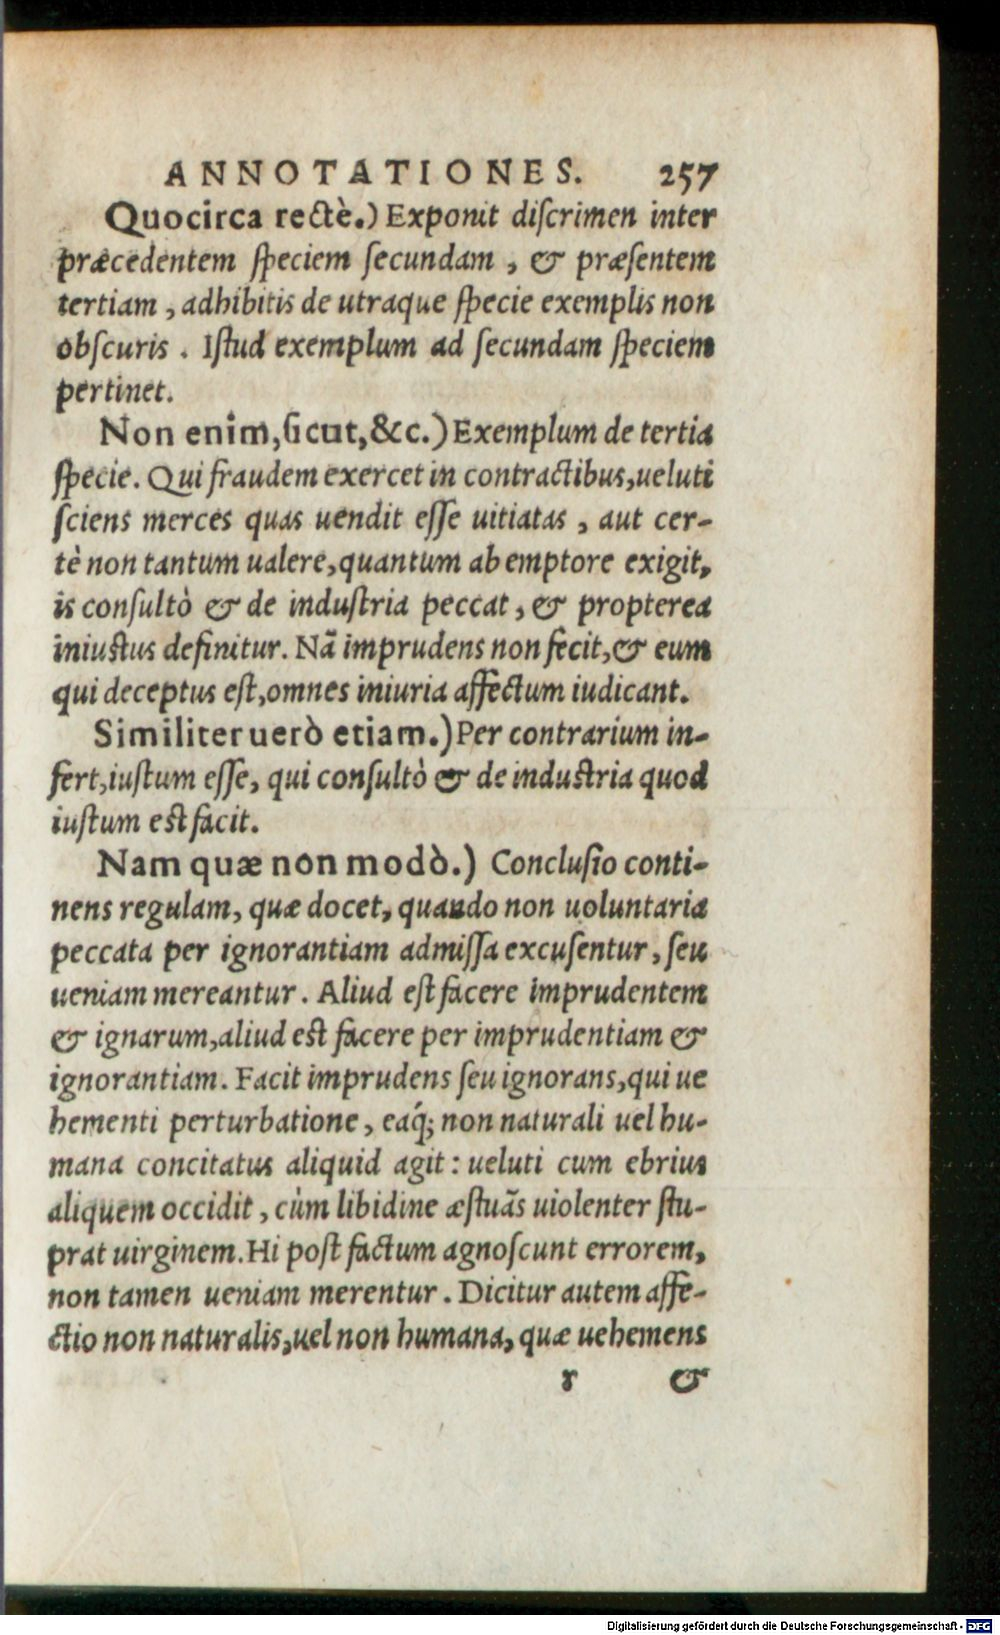 ANNOTATIONES. 257
Quocirca rectè.) Exponit discrimen inter
præcedentem speciem secundam, & præsentem
tertiam, adhibitis de utraque specie exemplis non
obscuris. Istud exemplum ad secundam speciem
pertinet.
Non enim, sicut, &c.) Exemplum de tertia
specie. Qui fraudem exercet in contractibus, ueluti
sciens merces quas uendit esse uitiatas, aut cer-
tè non tantum ualere, quantum ab emptore exigit,
is consultò & de industria peccat, & propterea
iniustus definitur. Nã imprudens non fecit, & eum
qui deceptus est, omnes iniuria affectum iudicant.
Similiter uerò etiam.) Per contrarium in-
fert, iustum esse, qui consultò & de industria quod
iustum est facit.
Nam quæ non modò.) Conclusio conti-
nens regulam, quæ docet, quando non uoluntaria
peccata per ignorantiam admissa excusentur, seu
ueniam mereantur. Aliud est facere imprudentem
& ignarum, aliud est facere per imprudentiam &
ignorantiam. Facit imprudens seu ignorans, qui ue
hementi perturbatione, eaq́; non naturali uel hu-
mana concitatus aliquid agit: ueluti cum ebrius
aliquem occidit, cùm libidine æstuãs uiolenter stu-
prat uirginem. Hi post factum agnoscunt errorem,
non tamen ueniam merentur. Dicitur autem affe-
ctio non naturalis, uel non humana, quæ uehemens
r &
Digitalisierung gefördert durch die Deutsche Forschungsgemeinschaft - DFG